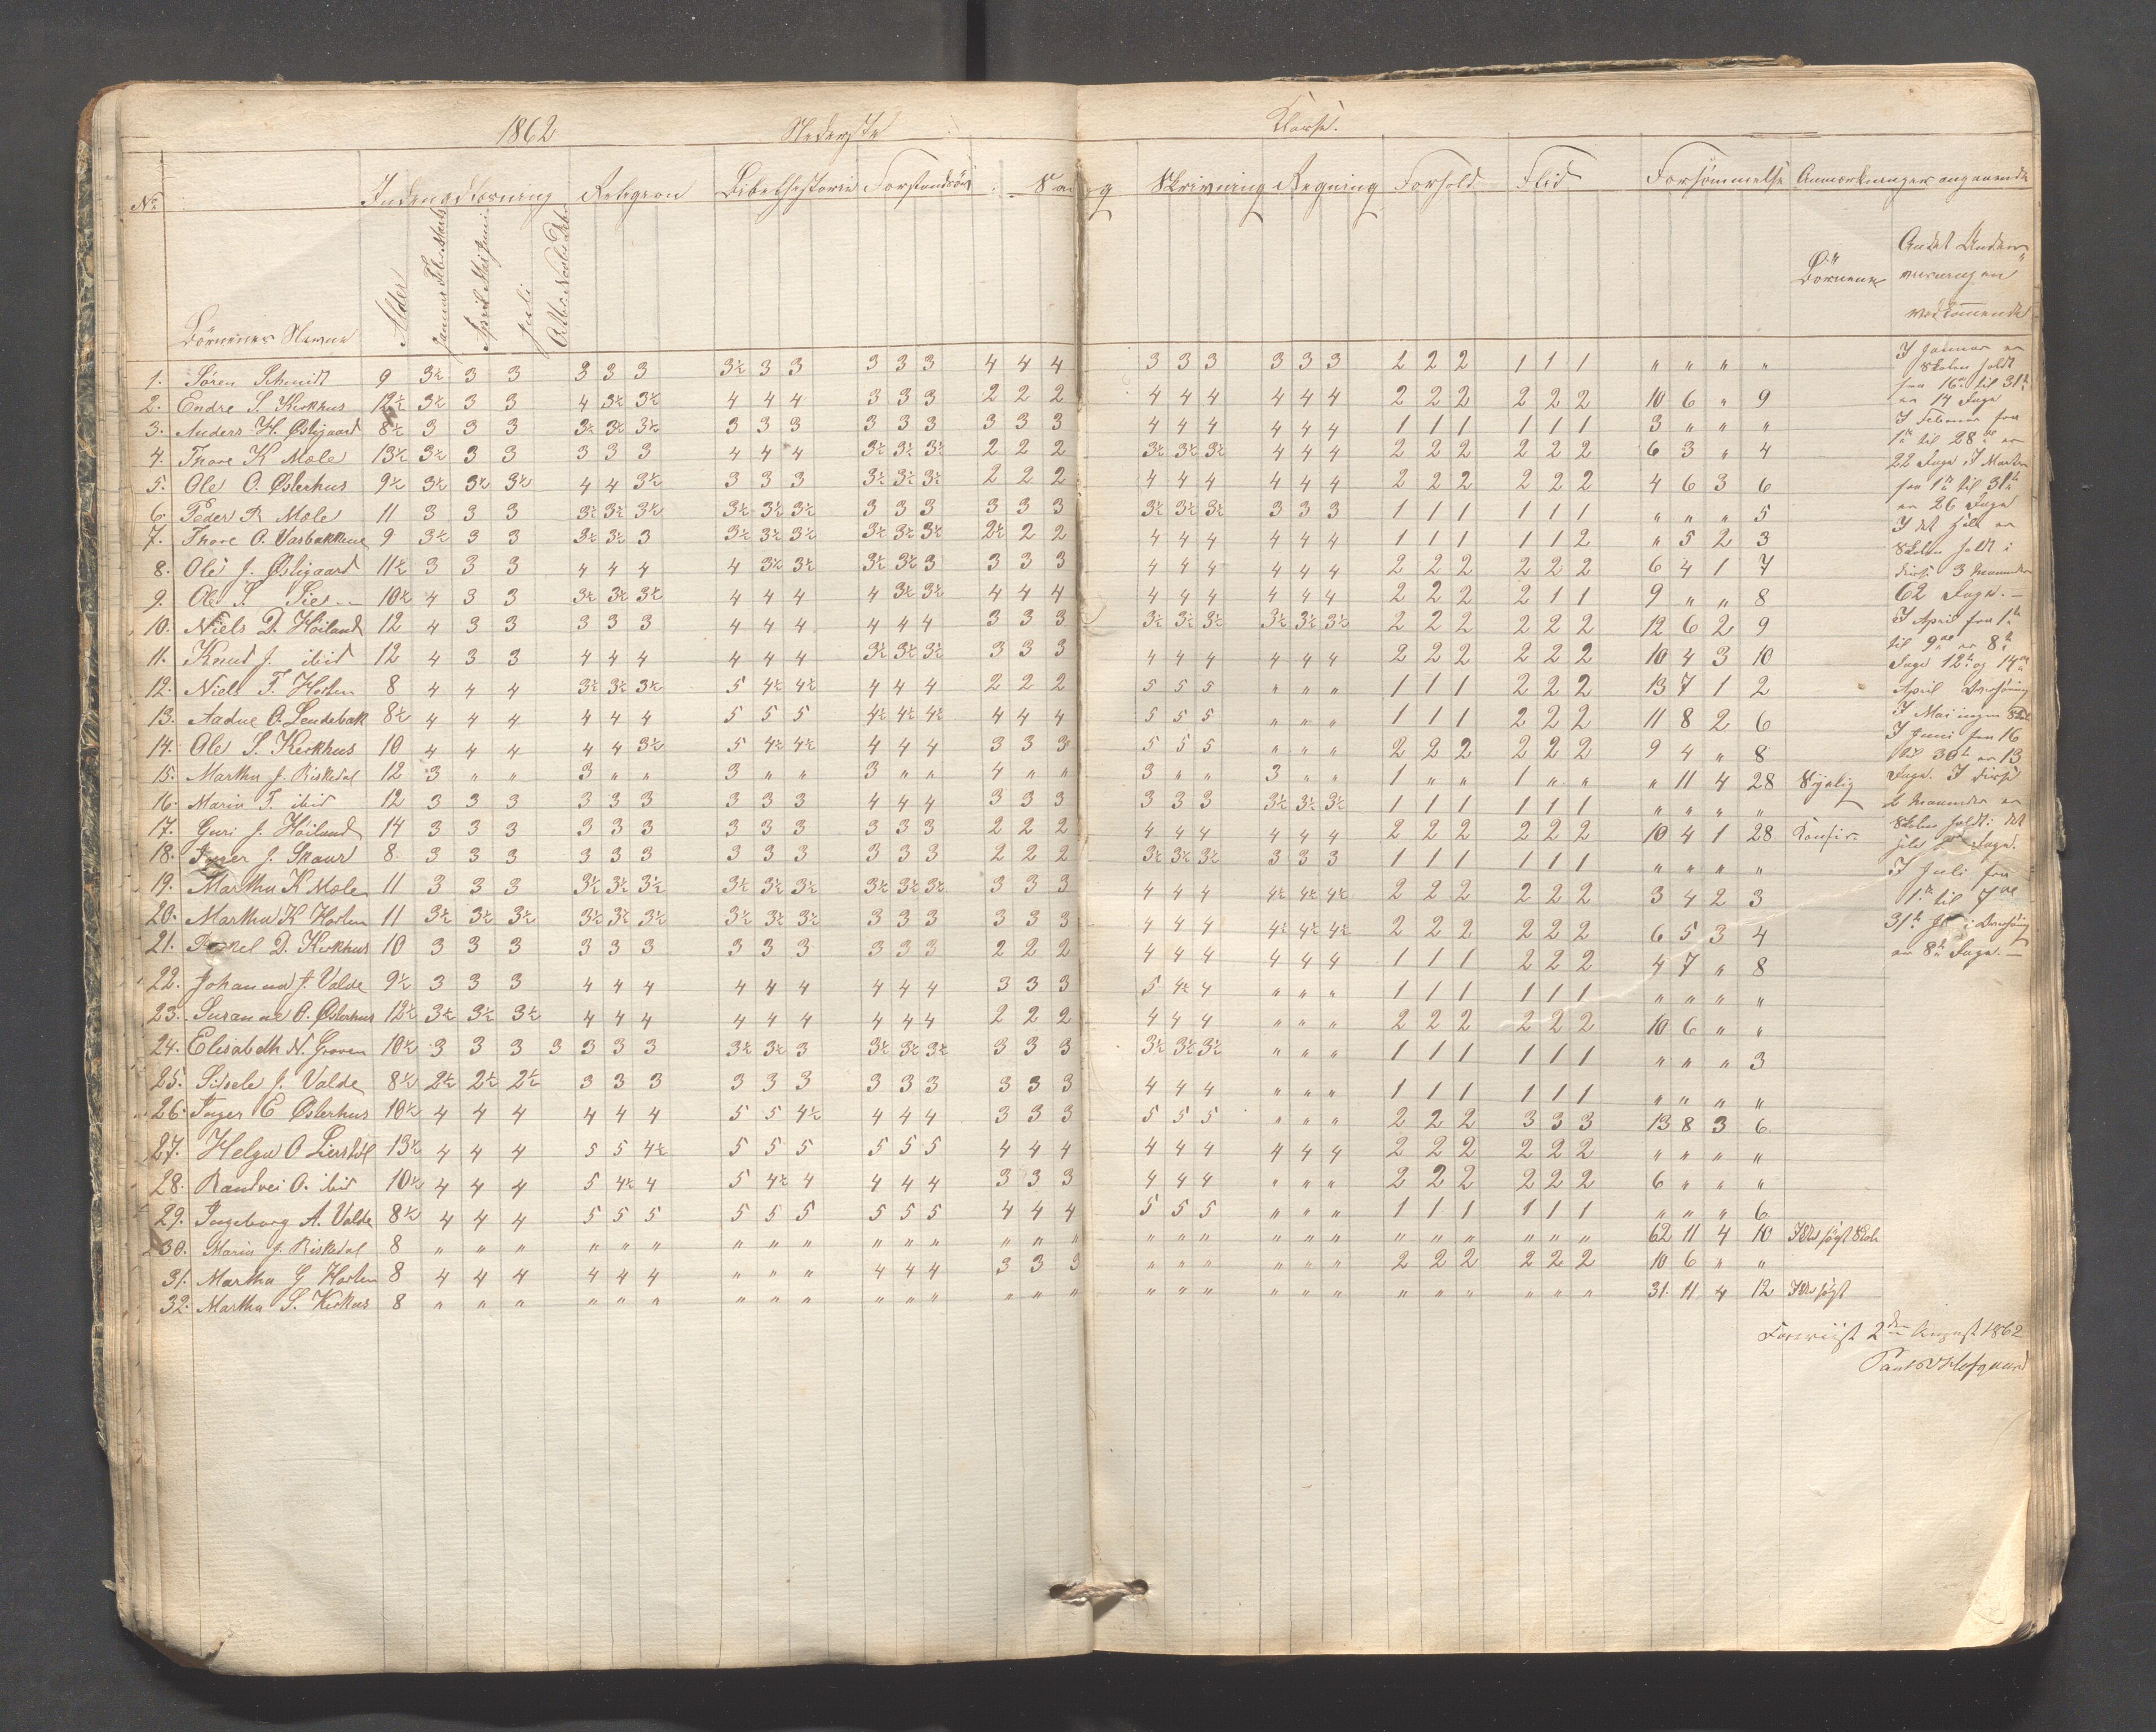 1862 Nederste Klasse.
No Børnenes Navne Alder Indenadlæsning Religion Bibelhistorie Forstandsøv. Sang Skrivning Regning Forhold Flid Forsömmelse Anmærkninger angaaende
Januar Febr. Marts April Mai Juni Juli Octbr. Novbr. Debr.
Börnene
Andet Under-
visningen
vedkommende
1. Sören Schmidt 9 3½ 3 3 3 3 3 3½ 3 3 3 3 3 4 4 4 3 3 3 3 3 3 2 2 2 1 1 1 " " " "
2. Endre S. Kirkhus 12½ 3½ 3 3 4 3½ 3½ 4 4 4 3 3 3 2 2 2 4 4 4 4 4 4 2 2 2 2 2 2 10 6 " 9
3. Anders H. Østigaard 8½ 3 3 3 3½ 3½ 3½ 3 3 3 3 3 3 3 3 3 4 4 4 4 4 4 1 1 1 1 1 1 3 " " "
4. Thore K Mæle 13½ 3½ 3 3 3 3 3 4 4 4 3½ 3½ 3½ 2 2 2 3½ 3½ 3½ 4 4 4 2 2 2 2 2 2 6 3 " 4
5. Ole O. Østerhus 9½ 3½ 3½ 3½ 4 4 3½ 3 3 3 3½ 3½ 3½ 2 2 2 4 4 4 4 4 4 2 2 2 2 2 2 4 6 3 6
6. Peder R Mæle 11 3 3 3 3½ 3½ 3½ 3½ 3½ 3½ 3 3 3 3 3 3 3½ 3½ 3½ 3 3 3 1 1 1 1 1 1 " " " 5
7. Thore O. Varbakkene 9 3½ 3 3 3½ 3½ 3 3½ 3½ 3½ 3½ 3½ 3½ 2½ 2 2 4 4 4 4 4 4 1 1 1 1 1 2 " 5 2 3
8. Ole J. Østigaard 11½ 3 3 3 4 4 4 4 3½ 3½ 3½ 3½ 3 3 3 3 4 4 4 4 4 4 2 2 2 2 2 2 6 4 1 7
9. Ole S. 10½ 4 3 3 3½ 3½ 3½ 4 4 4 4 3½ 3½ 4 4 4 4 4 4 4 4 4 2 2 2 2 1 1 9 " " 8
10. Niels D. Höiland 12 4 3 3 3 3 3 4 4 4 4 4 4 3 3 3 3½ 3½ 3½ 3½ 3½ 3½ 2 2 2 2 2 2 12 6 2 9
11. Knud J. ibid 12 4 3 3 4 4 4 4 4 4 3½ 3½ 3½ 3 3 3 4 4 4 4 4 4 2 2 2 2 2 2 10 4 3 10
12. Niels T. Horten 8 4 4 4 3½ 3½ 3½ 5 4½ 4½ 4 4 4 2 2 2 5 5 5 " " " 1 1 1 2 2 2 13 7 1 2
13. Aadne O. Lendebak 8½ 4 4 4 4 4 4 5 5 5 4½ 4½ 4½ 4 4 4 5 5 5 " " " 1 1 1 2 2 2 11 8 2 6
14. Ole S. Kirkhus 10 4 4 4 4 4 3½ 5 4½ 4½ 4 4 4 3 3 3 5 5 5 " " " 2 2 2 2 2 2 9 4 " 8
15. Martha J. Riskedal 12 3 " " 3 " " 3 " " 3 " " 4 " " 3 " " 3 " " 1 " " 1 " " " 11 4 28 Sygelig
16. Marin T. ibid 12 3 3 3 3 3 3 3 3 3 4 4 4 3 3 3 3 3 3 3½ 3½ 3½ 1 1 1 1 1 1 " " " "
17. Guri J. Höiland 14 3 3 3 3 3 3 3 3 3 3 3 3 2 2 2 4 4 4 4 4 4 2 2 2 2 2 2 10 4 1 28 Konfir.
18. Inger J. Skaar 8 3 3 3 3 3 3 3 3 3 3 3 3 2 2 2 3½ 3½ 3½ 3 3 3 1 1 1 1 1 1 " " " "
19. Martha K Mæle 11 3 3 3 3½ 3½ 3½ 3½ 3½ 3½ 3½ 3½ 3½ 3 3 3 4 4 4 4½ 4½ 4½ 2 2 2 2 2 2 3 4 2 3
20. Martha K Horten 11 3½ 3½ 3½ 3½ 3½ 3½ 3½ 3½ 3½ 3 3 3 3 3 3 4 4 4 4½ 4½ 4½ 2 2 2 2 2 2 6 5 3 4
21. Rakel D. Kirkhus 10 3 3 3 3 3 3 3 3 3 3 3 3 2 2 2 4 4 4 4 4 4 1 1 1 2 2 2 4 7 " 8
22. Johanna J. Valde 9½ 3 3 3 4 4 4 4 4 4 4 4 4 3 3 3 5 4½ 4 " " " 1 1 1 1 1 1 " " " "
23. Suranne O. Østerhus 12½ 3½ 3½ 3½ 4 4 4 4 4 4 4 4 4 2 2 2 4 4 4 " " " 2 2 2 2 2 2 10 6 " "
24. Elisabeth N. Groven 10½ 3 3 3 3 3 3 3 3½ 3½ 3 3½ 3½ 3½ 3 3 3 3½ 3½ 3½ " " " 1 1 1 1 1 1 " " " 3
25. Sidsele J. Valde 8½ 2½ 2½ 2½ 3 3 3 3 3 3 3 3 3 3 3 3 4 4 4 " " " 1 1 1 1 1 1 " " " "
26. Inger E Østerhus 10½ 4 4 4 4 4 4 5 5 4½ 4 4 4 3 3 3 5 5 5 " " " 2 2 2 3 3 3 13 8 3 6
27. Helga O 13½ 4 4 4 5 5 4½ 5 5 5 5 5 5 4 4 4 4 4 4 4 4 4 2 2 2 2 2 2 " " " "
28. Randvei O. ibid 10½ 4 4 4 5 4½ 4 5 4½ 4 4 4 4 3 3 3 4 4 4 " " " 2 2 2 2 2 2 6 " " "
29. Ingeborg A. Valde 8½ 4 4 4 5 5 5 5 5 5 5 5 5 4 4 4 5 5 5 " " " 1 1 1 1 1 1 " " " 6
30. Marin J. Riskedal 8 " " " " " " " " " " " " " " " " " " " " " " " " " " " 62 11 4 10 Ikke søgt Skole
31. Martha G Horten 8 4 4 4 4 4 4 " " " 4 4 4 3 3 3 " " " " " " 2 2 2 2 2 2 10 6 " "
32. Martha S. Kirkus 8 " " " " " " " " " " " " " " " " " " " " " " " " " " " 31. 11 4 12 Ikke søgt
I Januar er
Skolen holdt
fra 16de til 31te
er 14 Dage
I Februar fra
1te til 28de er
22 Dage, I Marts
fra 1te til 31te
er 26 Dage
I det hele er
Skolen holdt i
disse 3 Maaneder
62 Dage. –
I April fra 1te
til 9de er 8te
Dage 12te og 14de
April
I Mai ingen Skole
I Juni fra 16
til 30te er 13
Dage. I disse
2 Maaneder er
Skolen holdt i det
hele Dage.
I Juli fra
1te til 7de
31te
er 8te Dage. –
Foreviist 2den August 1862